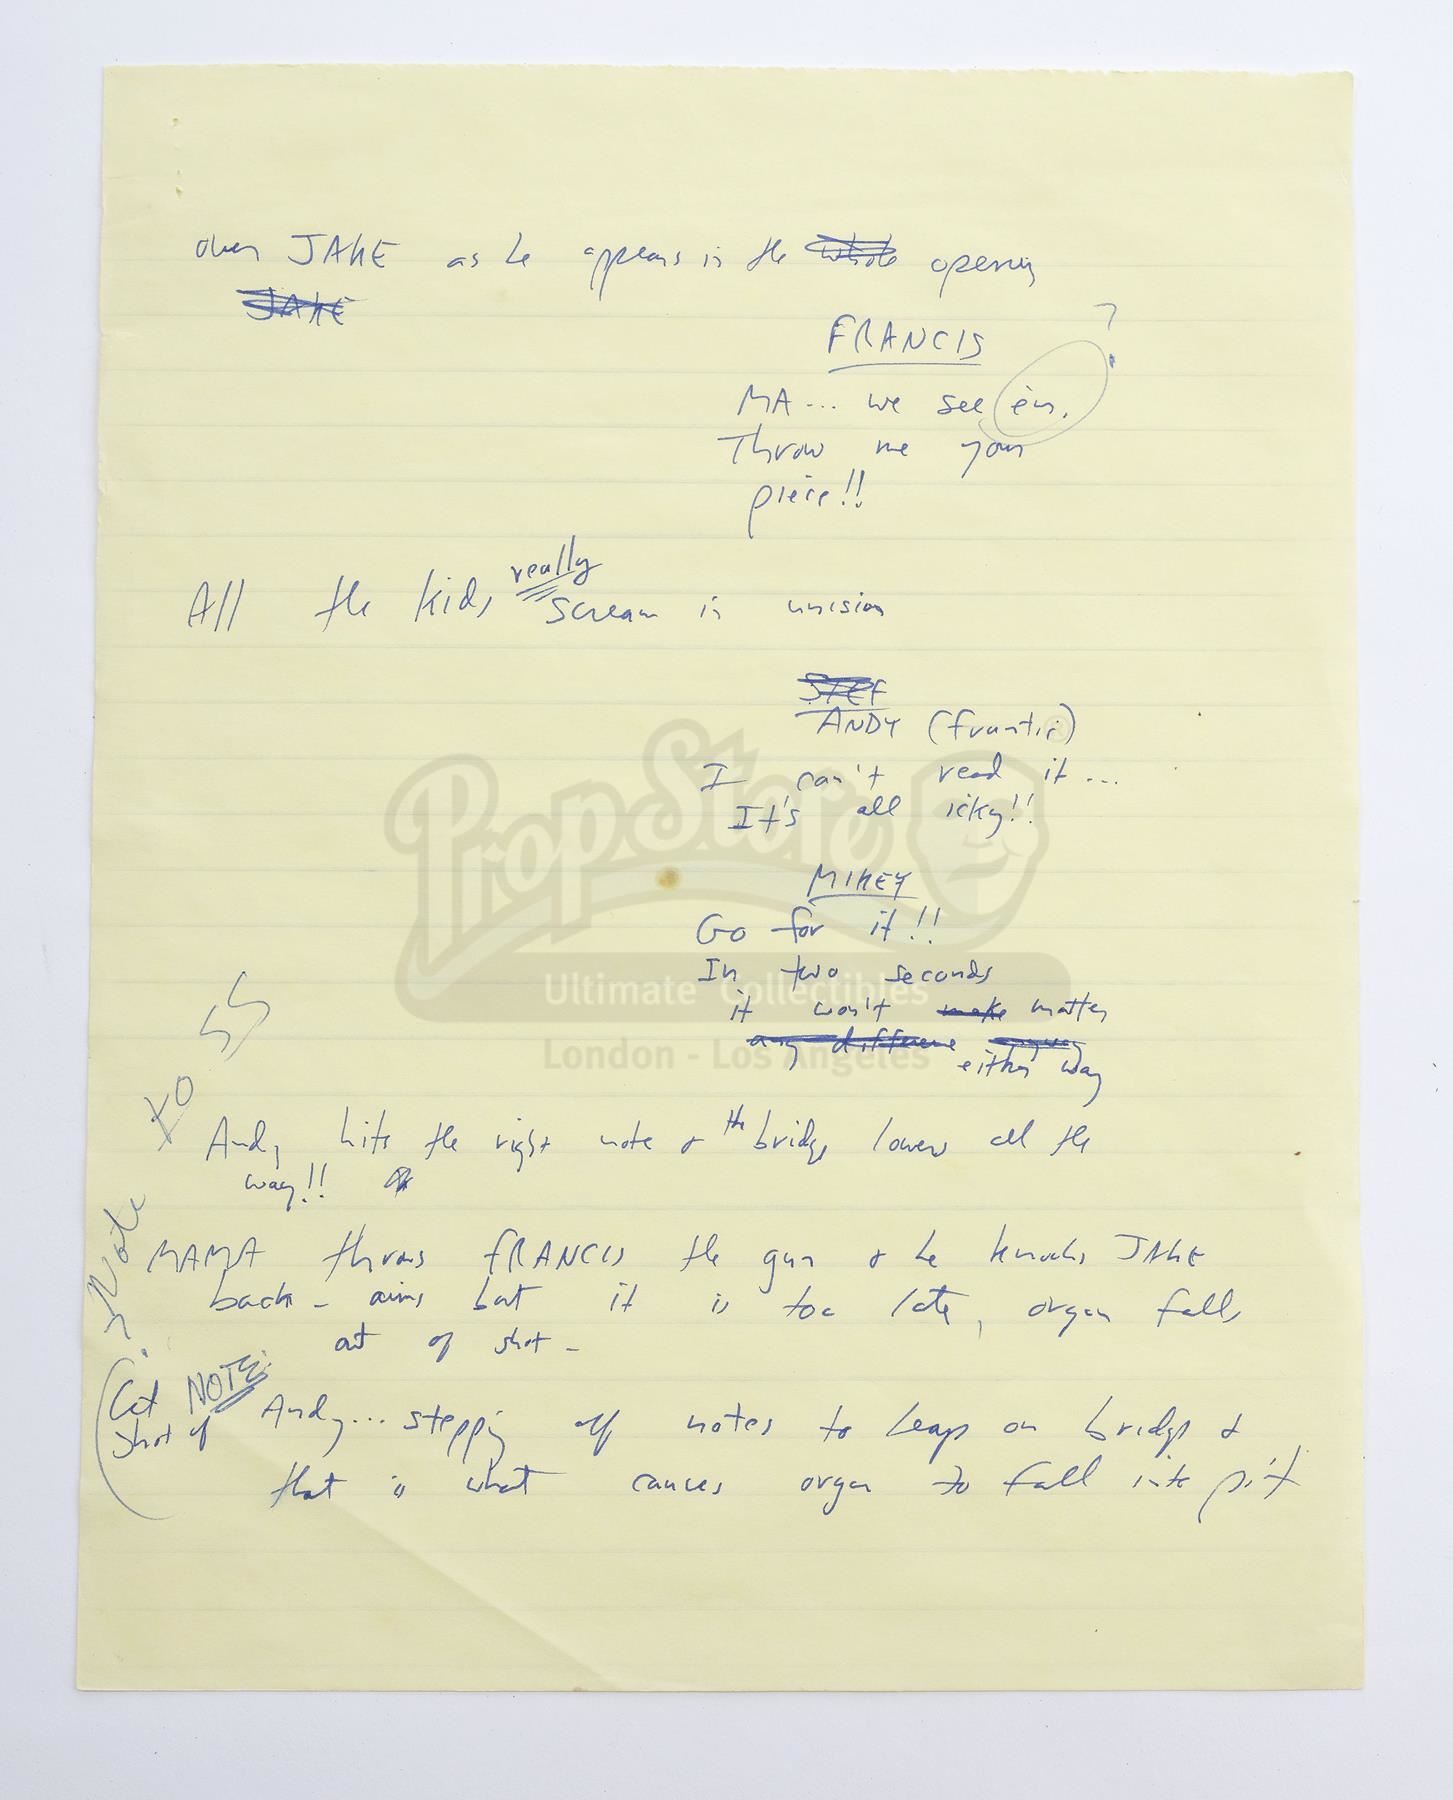 over JAKE as he appears in the whole opening
JAKE
FRANCIS ?
MA... we see em.
Throw me your
piece!!
All the kids really scream in unision
STEF
ANDY (frantic)
I can't read it...
It's all icky!!
MIKEY
Go for it!!
In two seconds
it won't make matter
any difference either way
Andy hits the right note & the bridge lowers all the
way!!
MAMA throws FRANCIS the gun & he knocks JAKE
back - aims but it is too late, organ falls
out of shot -
Note
to 55
(Cut NOTE: Andy... stepping off notes to leap on bridge &
shot of that is what causes organ to fall into pit
PropStore ®
Ultimate Collectibles
London - Los Angeles